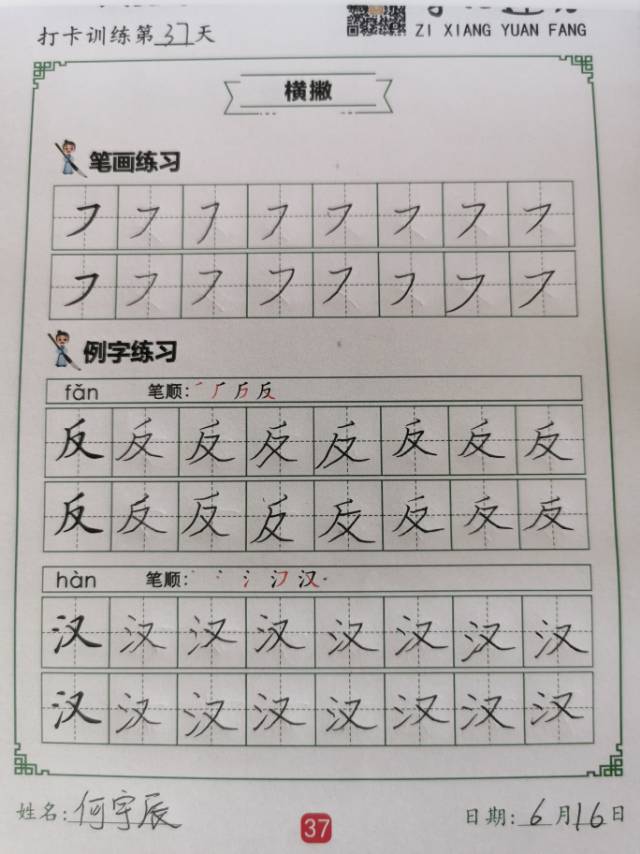 打卡训练第37天
ZI XIANG YUAN FANG
横撇
笔画练习
㇇㇇㇇㇇㇇㇇㇇㇇
㇇㇇㇇㇇㇇㇇㇇㇇
例字练习
fǎn 笔顺: 反
反反反反反反反反
反反反反反反反反
hàn 笔顺: 汉
汉汉汉汉汉汉汉汉
汉汉汉汉汉汉汉汉
姓名:何宇辰 37 日期:6月16日